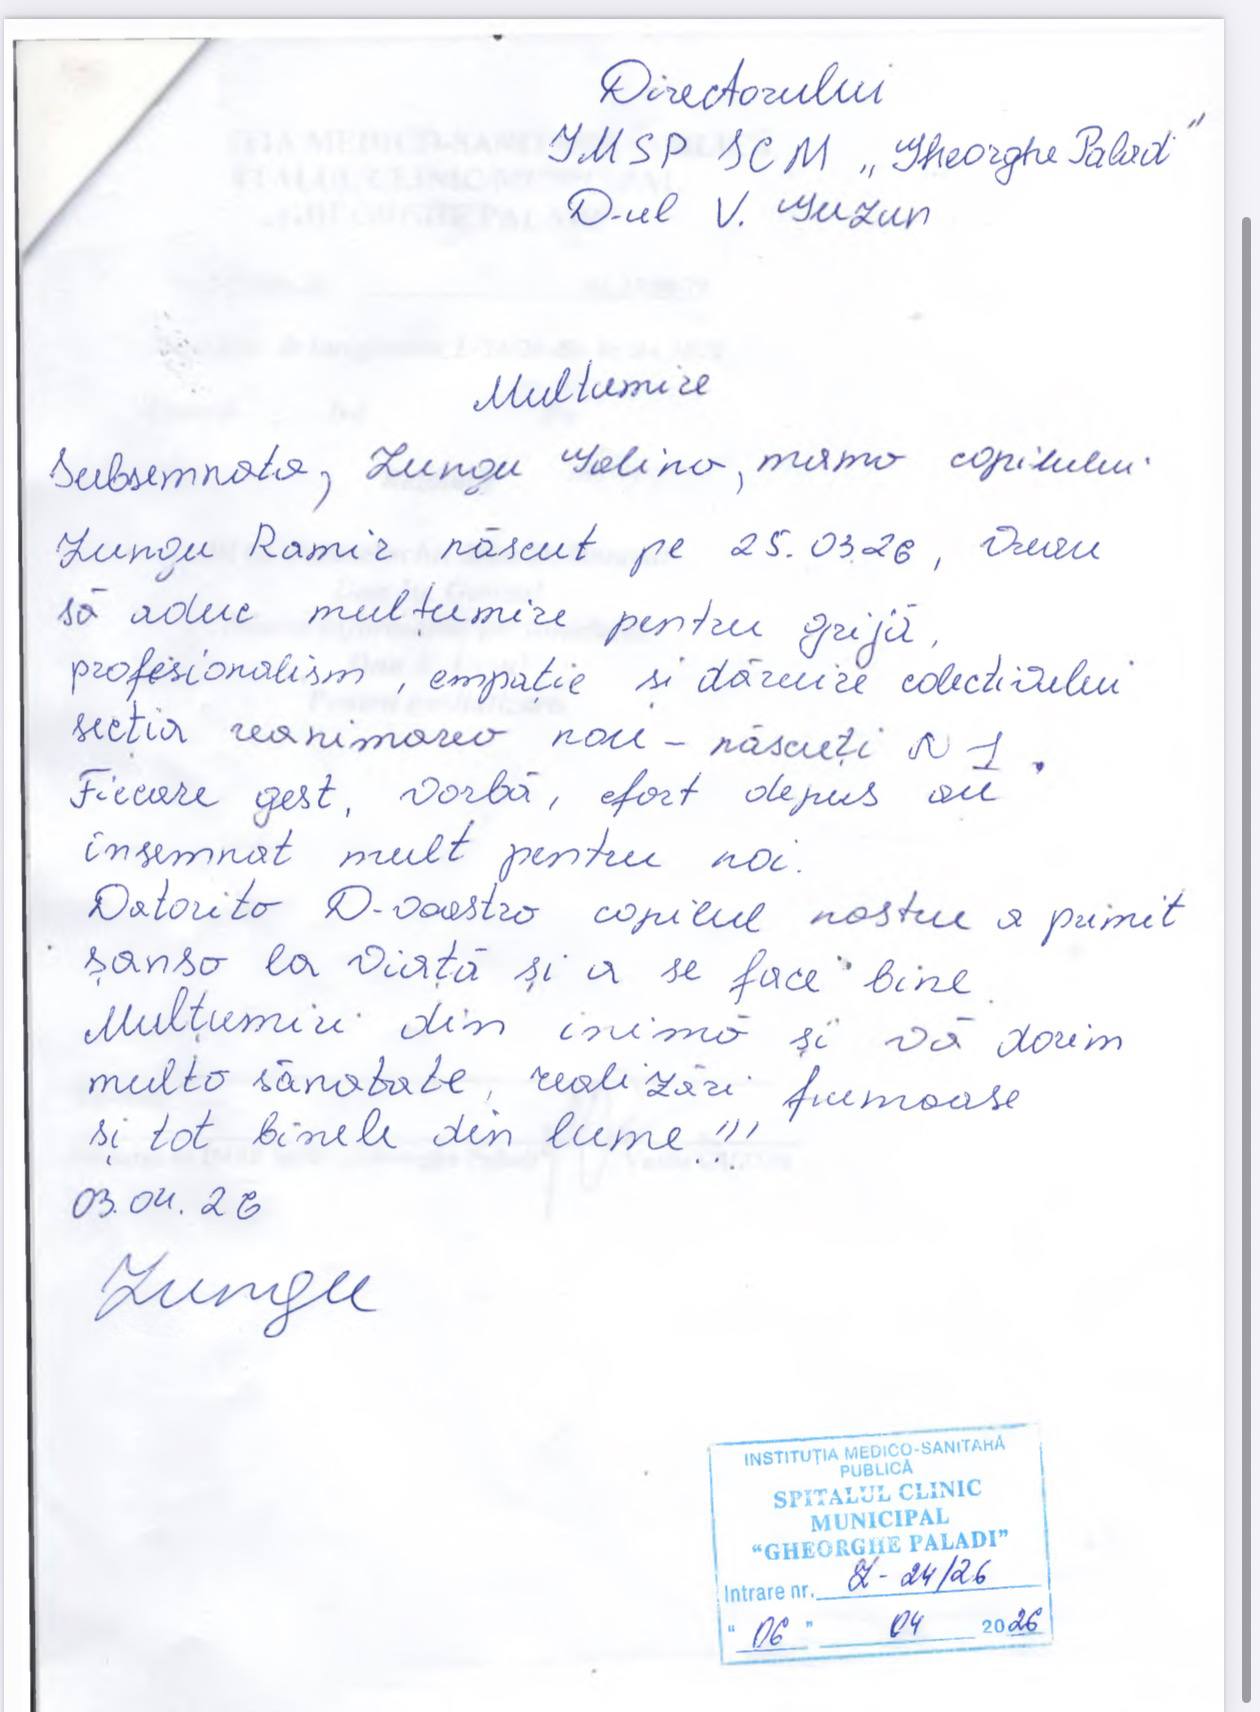 Directorului
IMSP SCM „Gheorghe Paladi"
D-ul V. Guzun
Multumire
Subsemnata, Lungu Galina, mama copilului
Lungu Ramir născut pe 25.03.26, vreau
să aduc mulțumire pentru grijă,
profesionalism, empație și dăruire colectivului
secția reanimarea nou-născuți N 1.
Fiecare gest, vorbă, efort depus au
însemnat mult pentru noi.
Datorita D-voastra copilul nostru a primit
șansa la viață și a se face bine.
Mulțumiri din inimă și vă dorim
multa sănatate, realizări frumoase
și tot binele din lume!!!
03.04.26
Lungu
INSTITUȚIA MEDICO-SANITARĂ
PUBLICĂ
SPITALUL CLINIC
MUNICIPAL
"GHEORGHE PALADI"
Intrare nr. 24/26
" 06 " 04 2026